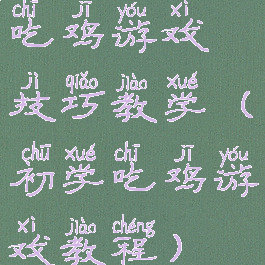 chī jī yóu xì
吃鸡游戏
jì qiǎo jiào xué
技巧教学（
chū xué chī jī yóu
初学吃鸡游
xì jiào chéng
戏教程）